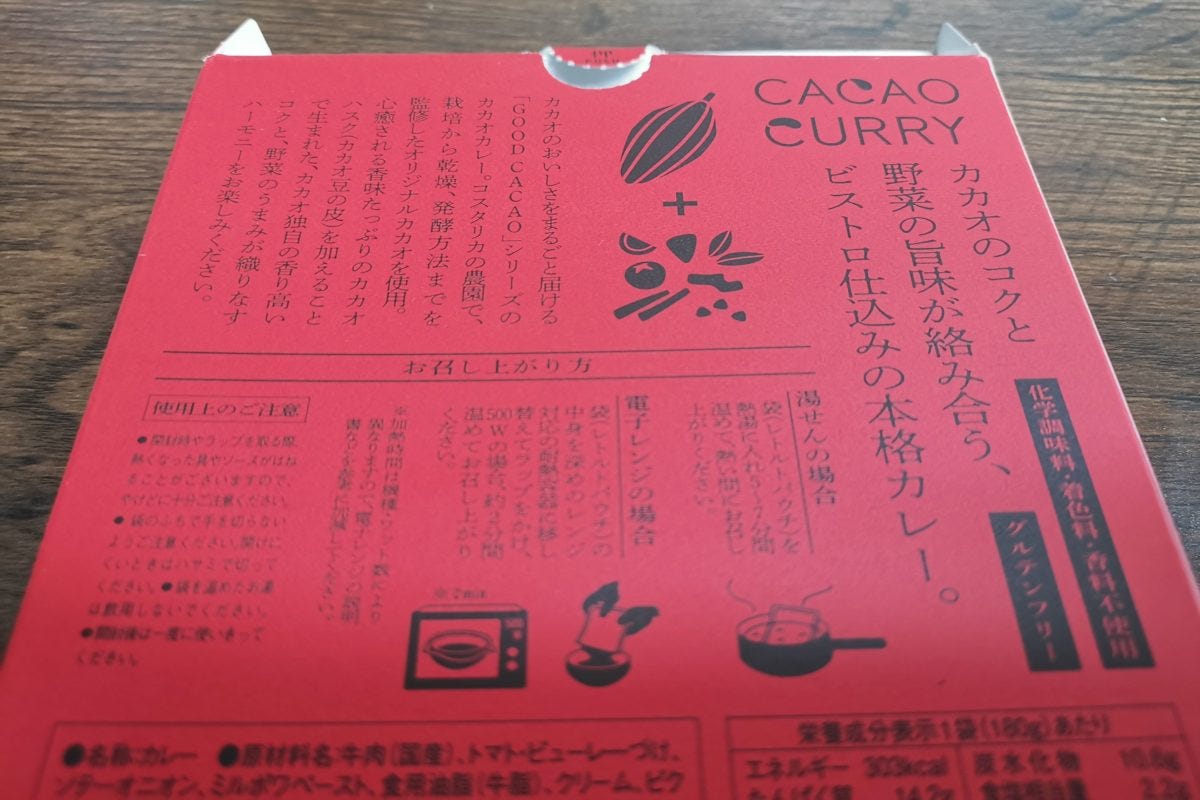 CACAO
CURRY
カカオのコクと
野菜の旨味が絡み合う、
ビストロ仕込みの本格カレー。
化学調味料・着色料・香料不使用
グルテンフリー
カカオのおいしさをまるごと届ける
「GOOD CACAO」シリーズの
カカオカレー。コスタリカの農園で、
栽培から乾燥、発酵方法までを
監修したオリジナルカカオを使用。
心癒される香味たっぷりのカカオ
ハスク(カカオ豆の皮)を加えること
で生まれた、カカオ独自の香り高い
コクと、野菜のうまみが織りなす
ハーモニーをお楽しみください。
お召し上がり方
湯せんの場合
袋(レトルトパウチ)を
熱湯に入れ5〜7分間
温めて、熱い間にお召し
上がりください。
電子レンジの場合
袋(レトルトパウチ)の
中身を深めのレンジ
対応の耐熱容器に移し
替えてラップをかけ、
500Wの場合、約2分間
温めてお召し上がり
ください。
※加熱時間は機種・ワット数により
異なりますので、電子レンジの説明
書などを参考に加減してください。
※2min
使用上のご注意
●開封時やラップを取る際、
熱くなった具やソースがはね
ることがございますので、
やけどに十分ご注意ください。
●袋のふちで手を切らない
ようご注意ください。開けに
くいときはハサミで切って
ください。●袋を温めたお湯
は飲用しないでください。
●開封後は一度に使いきって
ください。
●名称:カレー ●原材料名:牛肉(国産)、トマト・ピューレーづけ、
ソテーオニオン、ミルポワペースト、食用油脂(牛脂)、クリーム、ビク
栄養成分表示1袋(180g)あたり
エネルギー 303kcal
炭水化物 10.8g
たんぱく質 14.2g